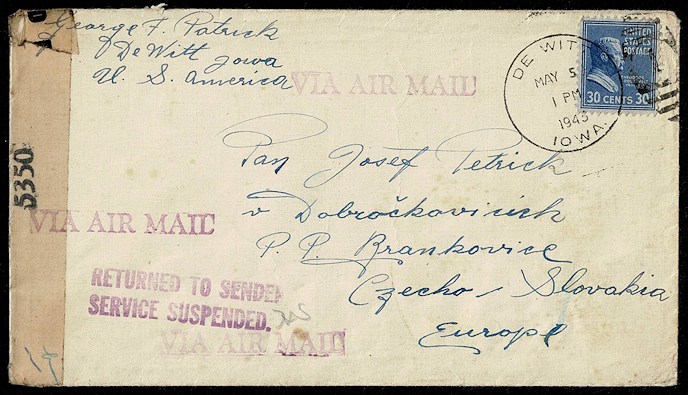 George F. Patrick
De Witt Iowa
U. S. America
VIA AIR MAIL
DE WITT
MAY 5
1 PM
1945
IOWA.
UNITED
STATES
POSTAGE
30 CENTS 30
Pan Josef Petrick
v Dobročkovicich
P. P. Brankovice
Czecho-Slovakia
Europe
5350
VIA AIR MAIL
RETURNED TO SENDER
SERVICE SUSPENDED.
VIA AIR MAIL